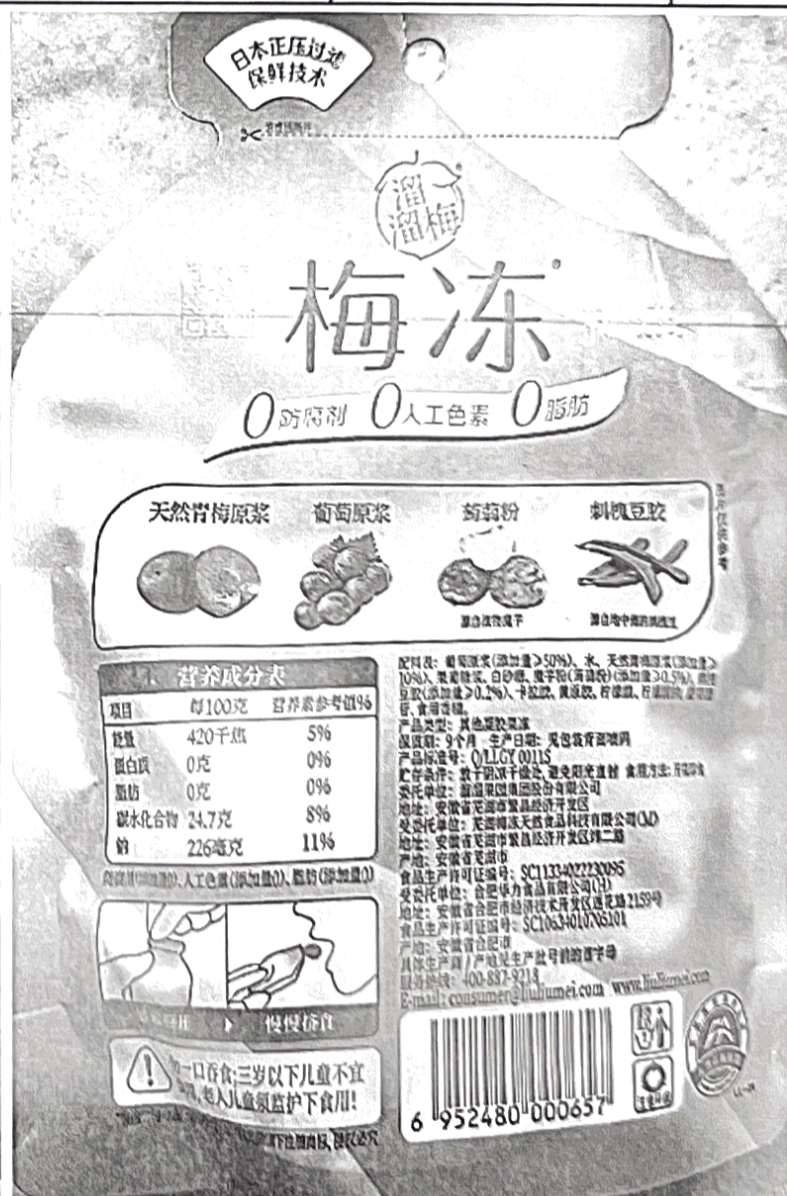 日本正压过滤
保鲜技术
溜
溜梅
梅冻
0防腐剂 0人工色素 0脂肪
天然青梅原浆 葡萄原浆 蒟蒻粉 刺槐豆胶
图片仅供参考
营养成分表
项目 每100克 营养素参考值%
能量 420千焦 5%
蛋白质 0克 0%
脂肪 0克 0%
碳水化合物 24.7克 8%
钠 226毫克 11%
人工色素(添加量0)、脂肪(添加量0)
慢慢挤食
一口吞食;三岁以下儿童不宜
儿童须监护下食用!
配料表: 葡萄原浆(添加量≥50%)、水、天然青梅原浆(添加量≥
10%)、果葡糖浆、白砂糖、魔芋粉(蒟蒻粉)(添加量≥0.5%)、
豆胶(添加量≥0.2%)、卡拉胶、黄原胶、柠檬酸、
食用香精。
产品类型: 其他凝胶果冻
保质期: 9个月 生产日期: 见包装背面喷码
产品标准号: Q/LLGY 0011S
贮存条件: 置于阴凉干燥处,避免阳光直射 食用方法: 开袋即食
委托单位: 溜溜果园集团股份有限公司
地址: 安徽省芜湖市繁昌经济开发区
受委托单位: 天然食品科技有限公司
地址: 安徽省芜湖市繁昌经济开发区纬二路
产地: 安徽省芜湖市
食品生产许可证编号: SC11334022230095
受委托单位: 合肥华力食品有限公司(H)
地址: 安徽省合肥市经济技术开发区莲花路2159号
食品生产许可证编号: SC10634010705101
产地: 安徽省合肥市
具体生产商/产地见生产批号前的首字母
服务热线: 400-887-9218
E-mail: consumer@liuliumei.com www.liuliumei.com
6 952480 000657